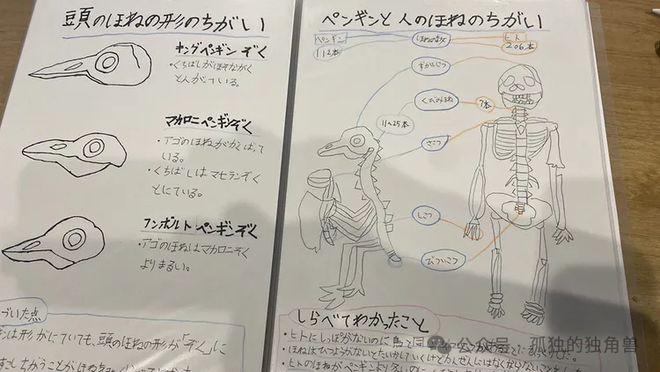 頭のほねの形のちがい
キングペンギンぞく
・くちばしがほそながく
とんがている。
マカロニペンギンぞく
・アゴのほねがかくばって
いる。
・くちばしはマゼランぞく
とにている。
フンボルトペンギンぞく
・アゴのほねはマカロニぞく
よりまるい。
づいた点
は形がにていても、頭のほねの形が「ぞく」に
すこしちがうことが
ペンギンと人のほねのちがい
ペンギン
112本
ほねのかず
ヒト
206本
ずがいこつ
くびのほね
7本
11〜25本
さこつ
しこつ
びついこつ
しらべてわかったこと
・ヒトにしっぽがないのに鳥と同
・ほねはひつようがないとたいかしていくけどかんぜんにはなくならないこと
・ヒトのほねがペンギンより
公众号：孤独的独角兽